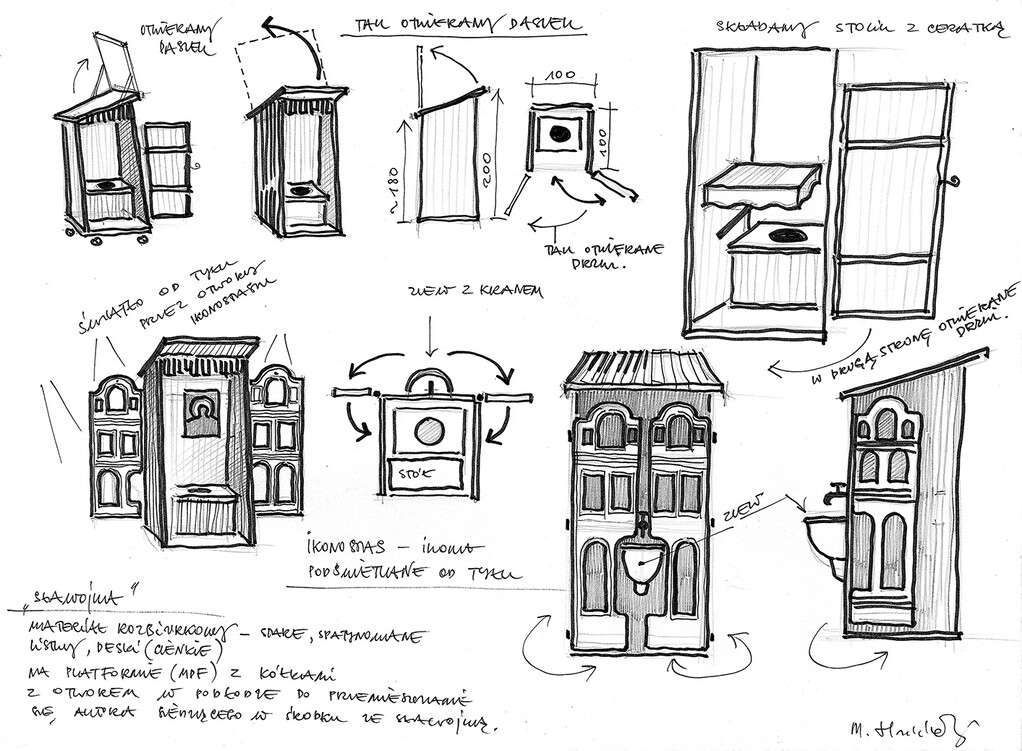 OTWIERANY
DASZEK
TAK OTWIERANY DASZEK
SKŁADANY STOLIK Z CERATKĄ
100
100
~180
200
TAK OTWIERANE
DRZWI.
ŚWIATŁO OD TYŁU
PRZEZ OTWORY
IKONOSTASU
ZLEW Z KRANEM
W DRUGĄ STRONĘ OTWIERANE
DRZWI.
STÓŁ
ZLEW
IKONOSTAS – IKONA
PODŚWIETLANE OD TYŁU
„SŁAWOJKA"
MATERIAŁ ROZBIÓRKOWY – STARE, SPATYNOWANE
LISTWY, DESKI (CIENKIE)
NA PLATFORMIE (MDF) Z KÓŁKAMI
Z OTWOREM W PODŁODZE DO PRZEMIESZCZANIA
SIĘ AKTORA SIEDZĄCEGO W ŚRODKU ZE SŁAWOJKĄ.
M.